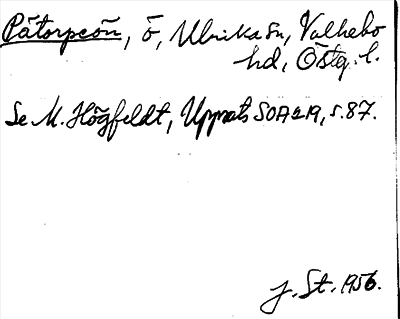 Pätorpeön, ö, Ulrika sn, Valkebo
hd, Östg. l.
Se M. Högfeldt, Uppsats SOA 219, s. 87.
J. St. 1956.